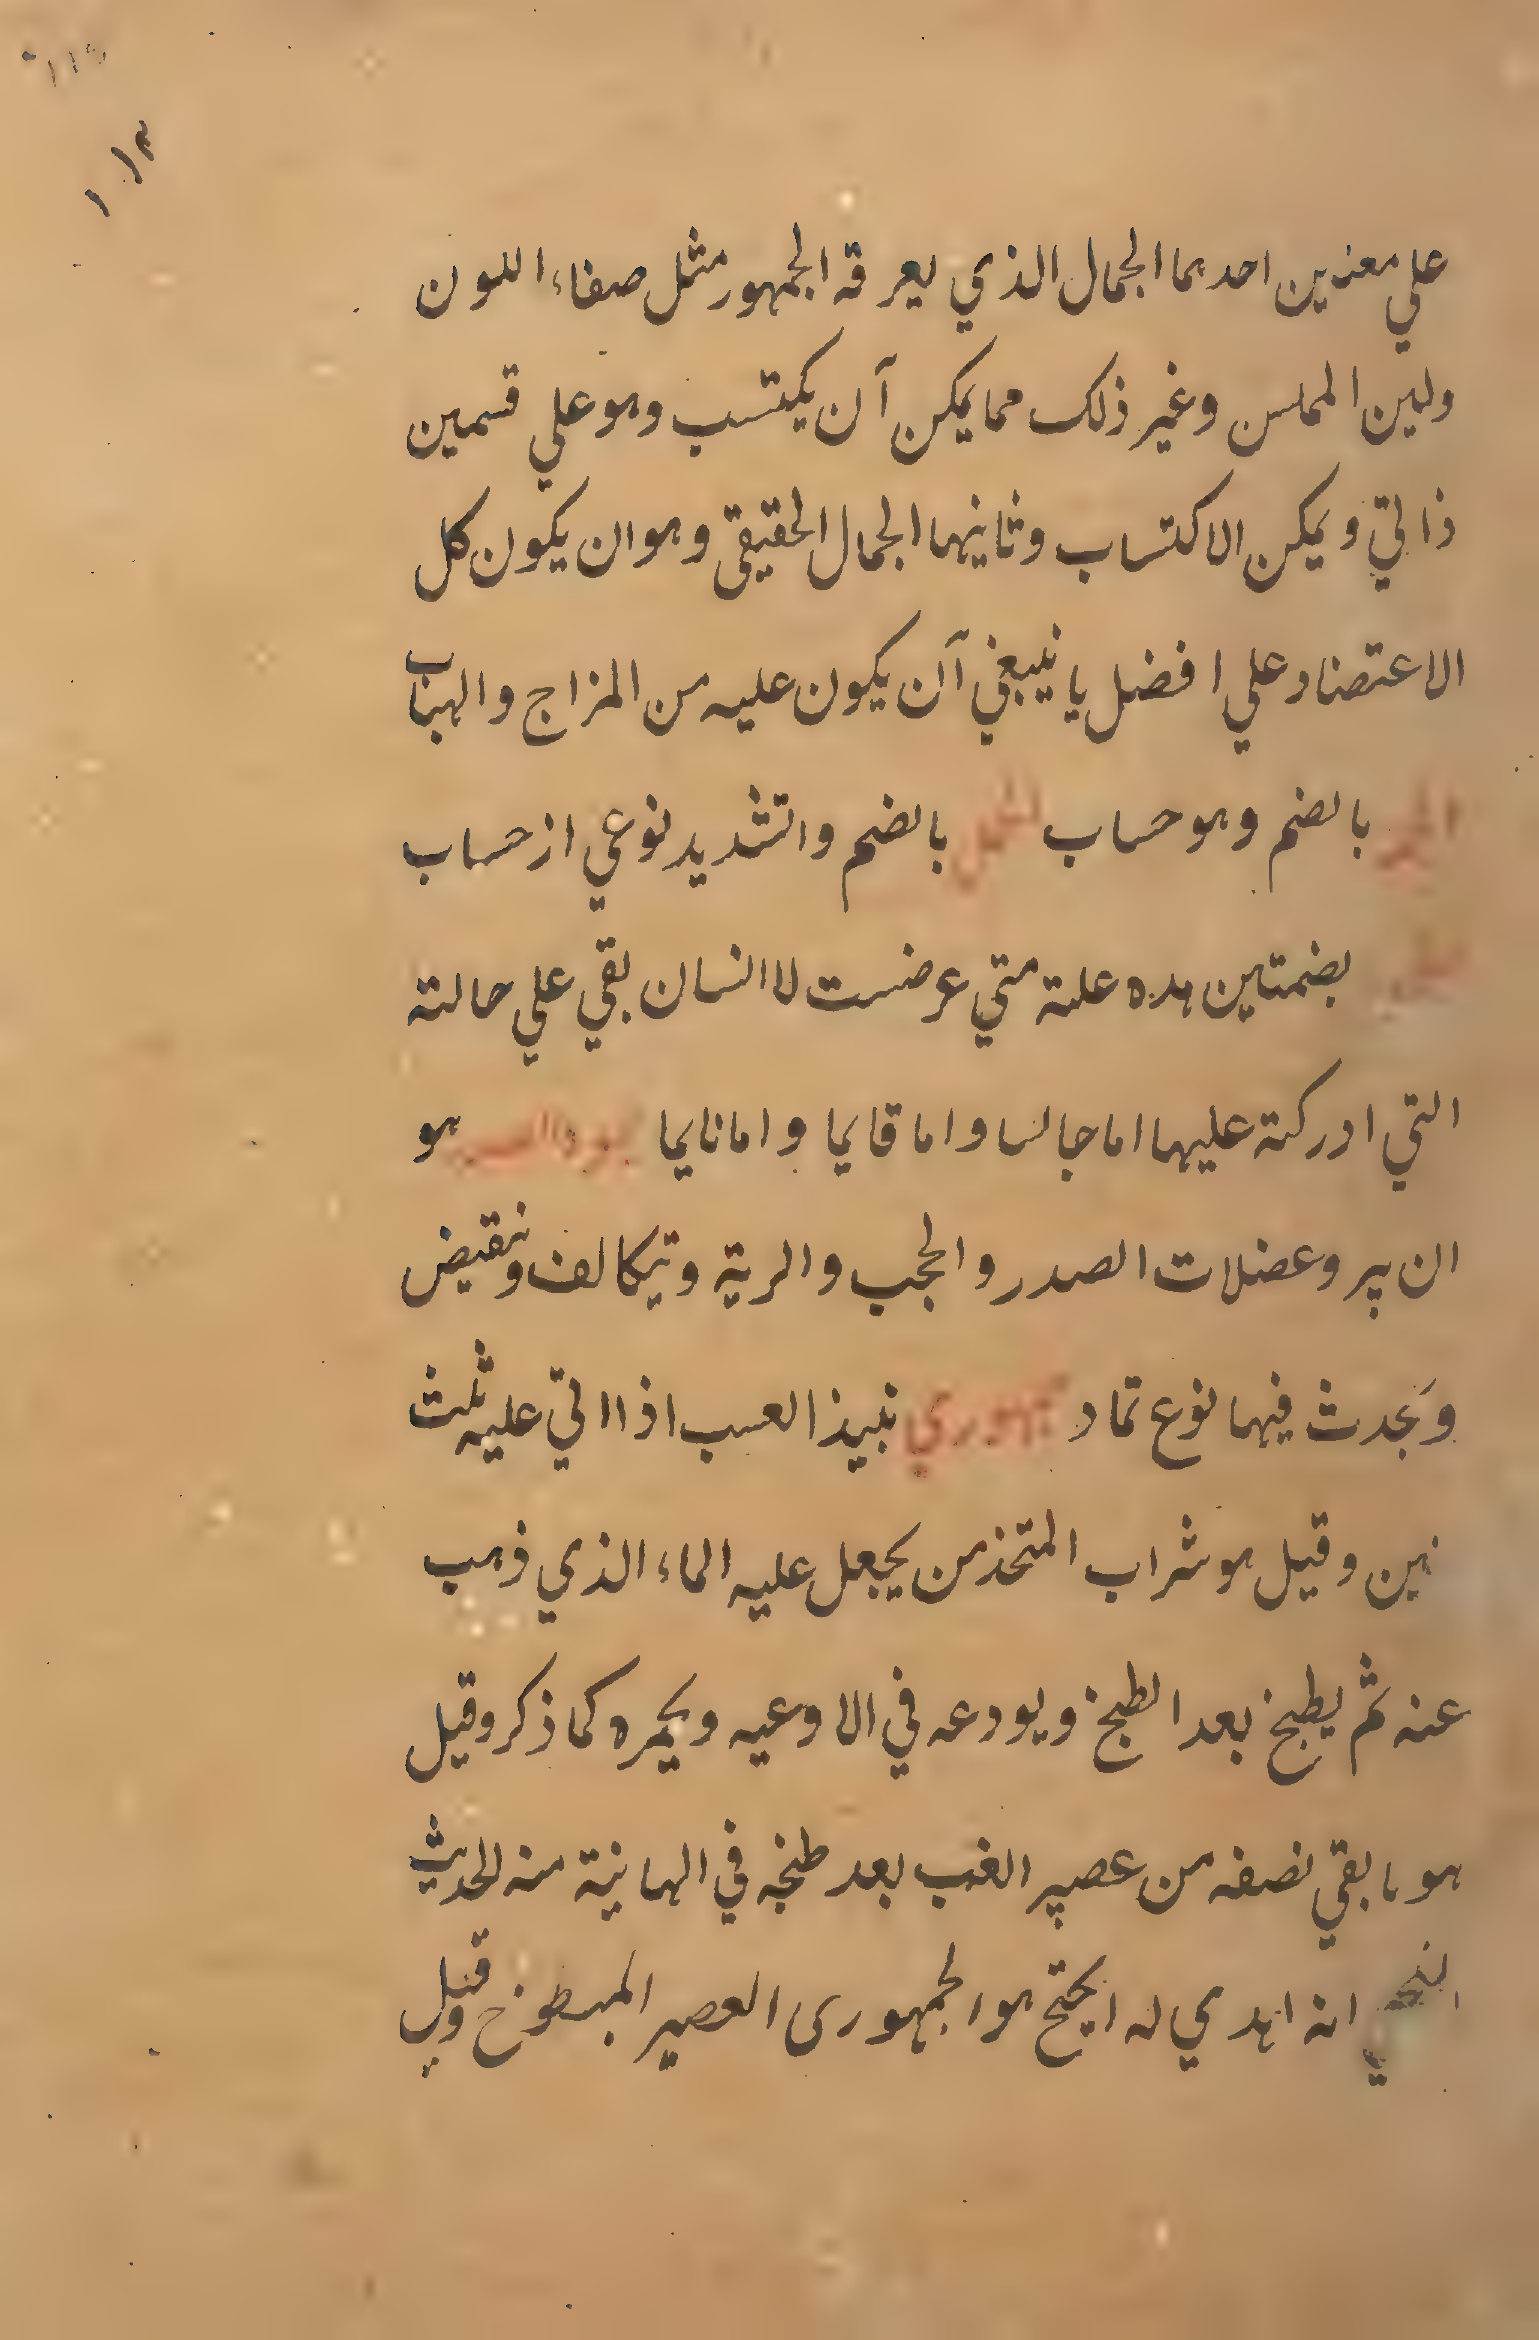 ۱۱۳
علي معنيين احدهما الجمال الذي يعرفه الجمهور مثل صفاء اللون
ولين الملمس وغير ذلك مما يمكن آن يكتسب وهو علي قسمين
ذاتي ويمكن الاكتساب وثانيهما الجمال الحقيقي وهو ان يكون كل
الاعتضاد علي افضل يا ينبغي آن يكون عليه من المزاج والهباب
بالضم وهو حساب الجمل بالضم واتشديد نوعي از حساب
بضمتين هده علته متي عرضت لاانسان بقي علي حالته
التي ادركته عليها اما جالسا واما قايما واما نايما جمود الصدر هو
ان يبر وعضلات الصدر والحجب والرية وتيكالف ونقيض
ويحدث فيها نوع تماد جمهوري نبيذ العسب اذا اتي عليه ثلث
نين وقيل هو شراب المتخذ من يجعل عليه الماء الذي ذهب
عنه ثم يطبخ بعد الطبخ ويودعه في الاوعيه ويخمره كما ذكر وقيل
هو ما بقي نصفه من عصير الغب بعد طبخه في الهانية منه الحديث
انه اهدي له ايختج هو الجمهوری العصير المبطوخ وقيل